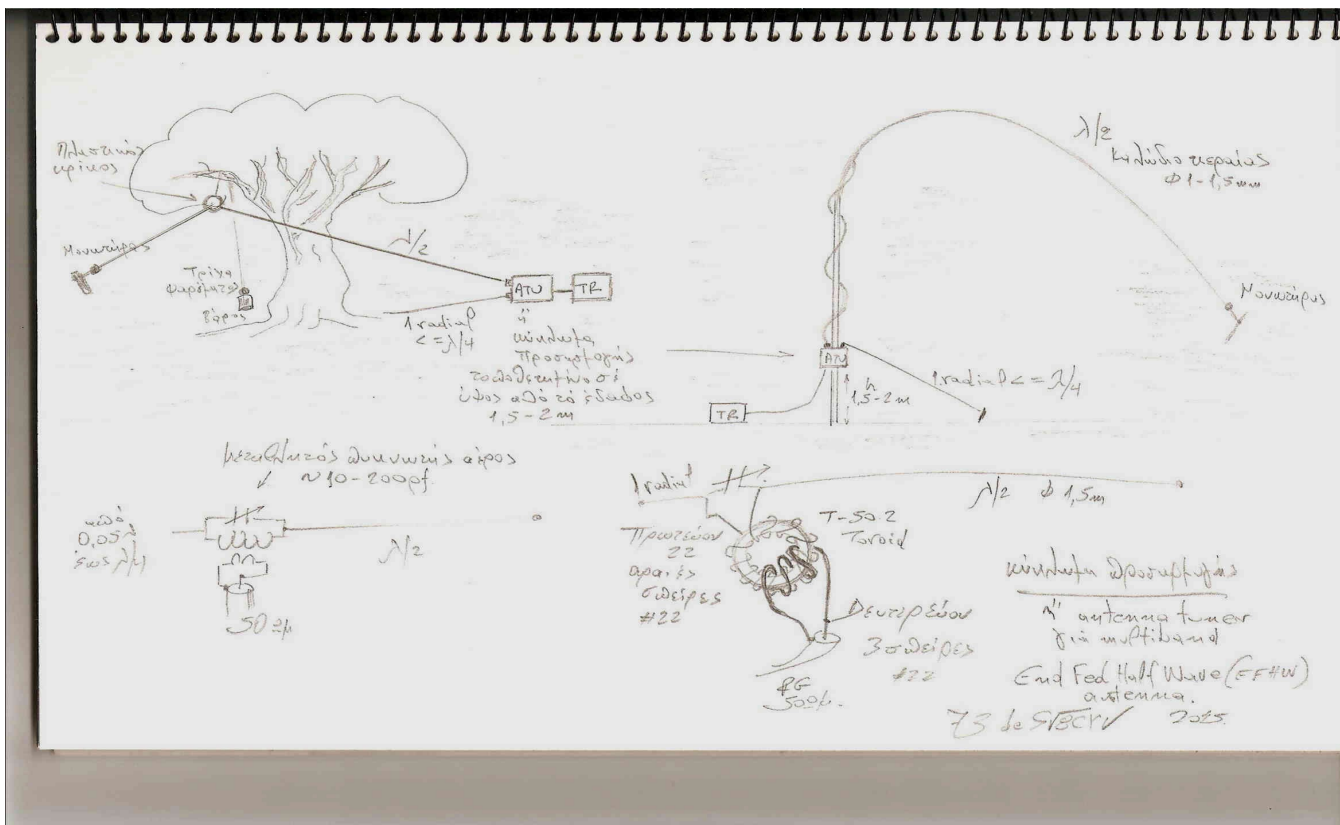 Πλαστικός
κρίκος
Μονωτήρας
Τρίχα
ψαρέματος
Βάρος
λ/2
ATU
TR
1 radial
<= λ/4
ή
κύκλωμα
προσαρμογής
τοποθετημένο σέ
ύψος από τό έδαφος
1,5-2m
λ/2
Καλώδιο κεραίας
Φ1-1,5mm
Μονωτήρας
ATU
1 radial <= λ/4
h
1,5-2m
TR
μεταβλητός πυκνωτής αέρος
~10-200pf
από
0,05λ
έως λ/4
λ/2
50
1 radial
λ/2 Φ 1,5m
T-50.2
Toroid
Πρωτεύον
22
αραιές
σπείρες
#22
Δευτερεύον
3 σπείρες
#22
RG
50
κύκλωμα προσαρμογής
ή antenna tuner
γιά multiband
End Fed Half Wave (EFHW)
antenna.
73 de